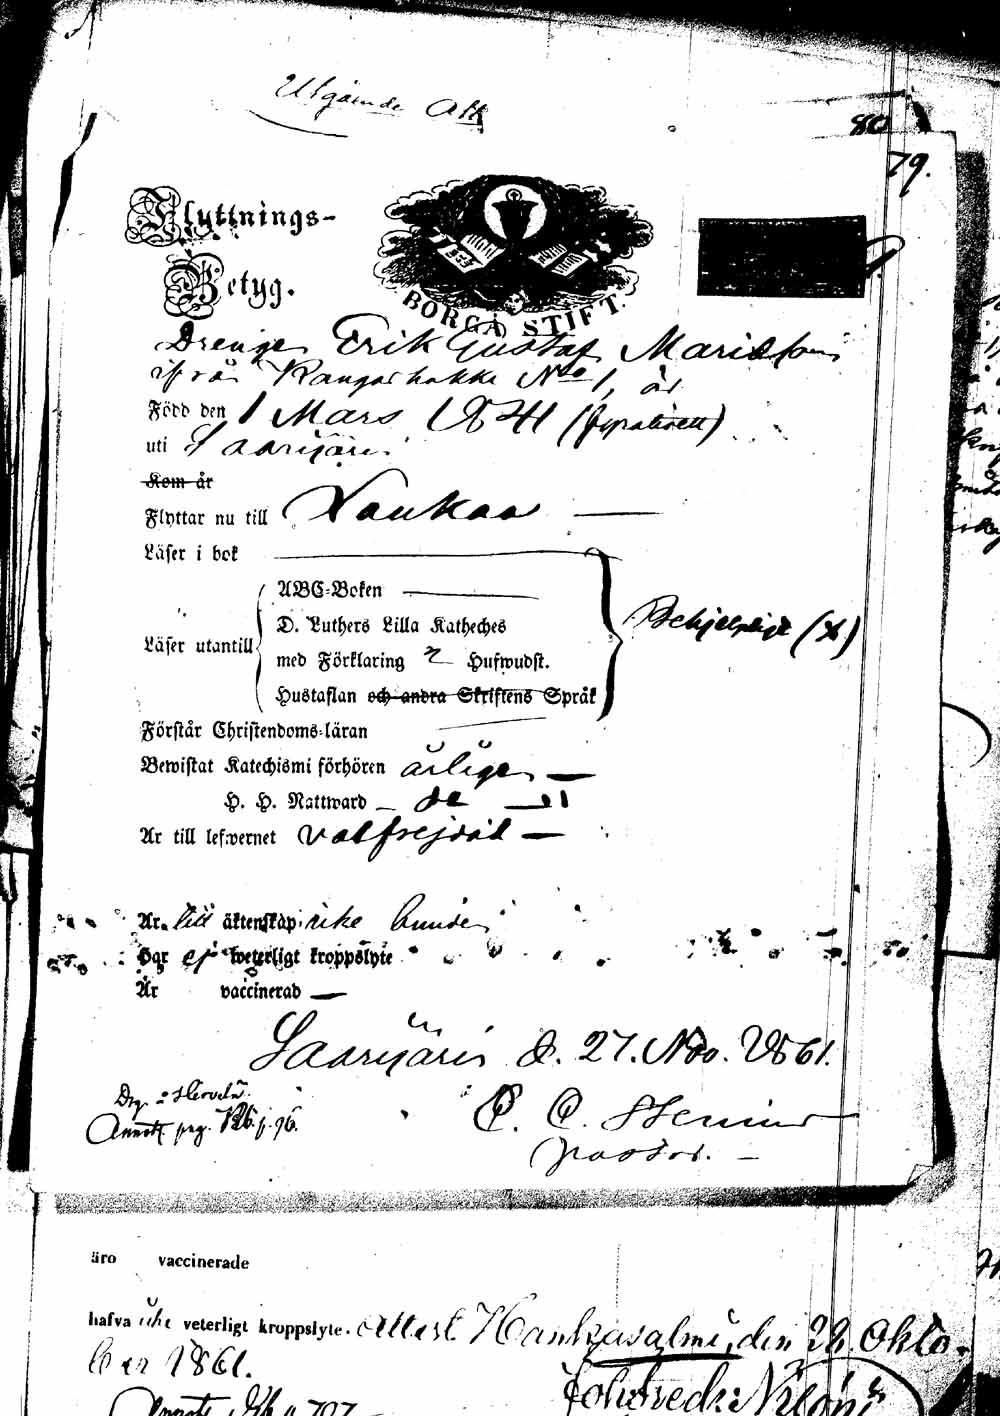 Utgående Att
80
79.
Flyttnings-
Betyg.
BORGÅ STIFT.
Drengen Erik Gustaf
ifrån Kangashäkki No 1, är
Född den 1 Mars 1841
uti Saarijärvi
Kom år
Flyttar nu till Laukaa
Läser i bok
ABC-Boken
D. Luthers Lilla Katheches
Läser utantill
med Förklaring 2 Hufwudst.
Hustaflan och andra Skriftens Språk
Behjelpligt (x)
Förstår Christendoms-läran
Bewistat Katechismi förhören årligen
H. H. Nattward de
Är till lefwernet välfrejdad
Är till äktenskap icke bunden
Har ej weterligt kroppslyte
Är vaccinerad
Saarijärvi d. 27. Nov. 1861.
Annott. pag.
Pastor.
äro vaccinerade
hafva icke veterligt kroppslyte. Attest. Hankasalmi, den 28. Okto-
ber 1861.